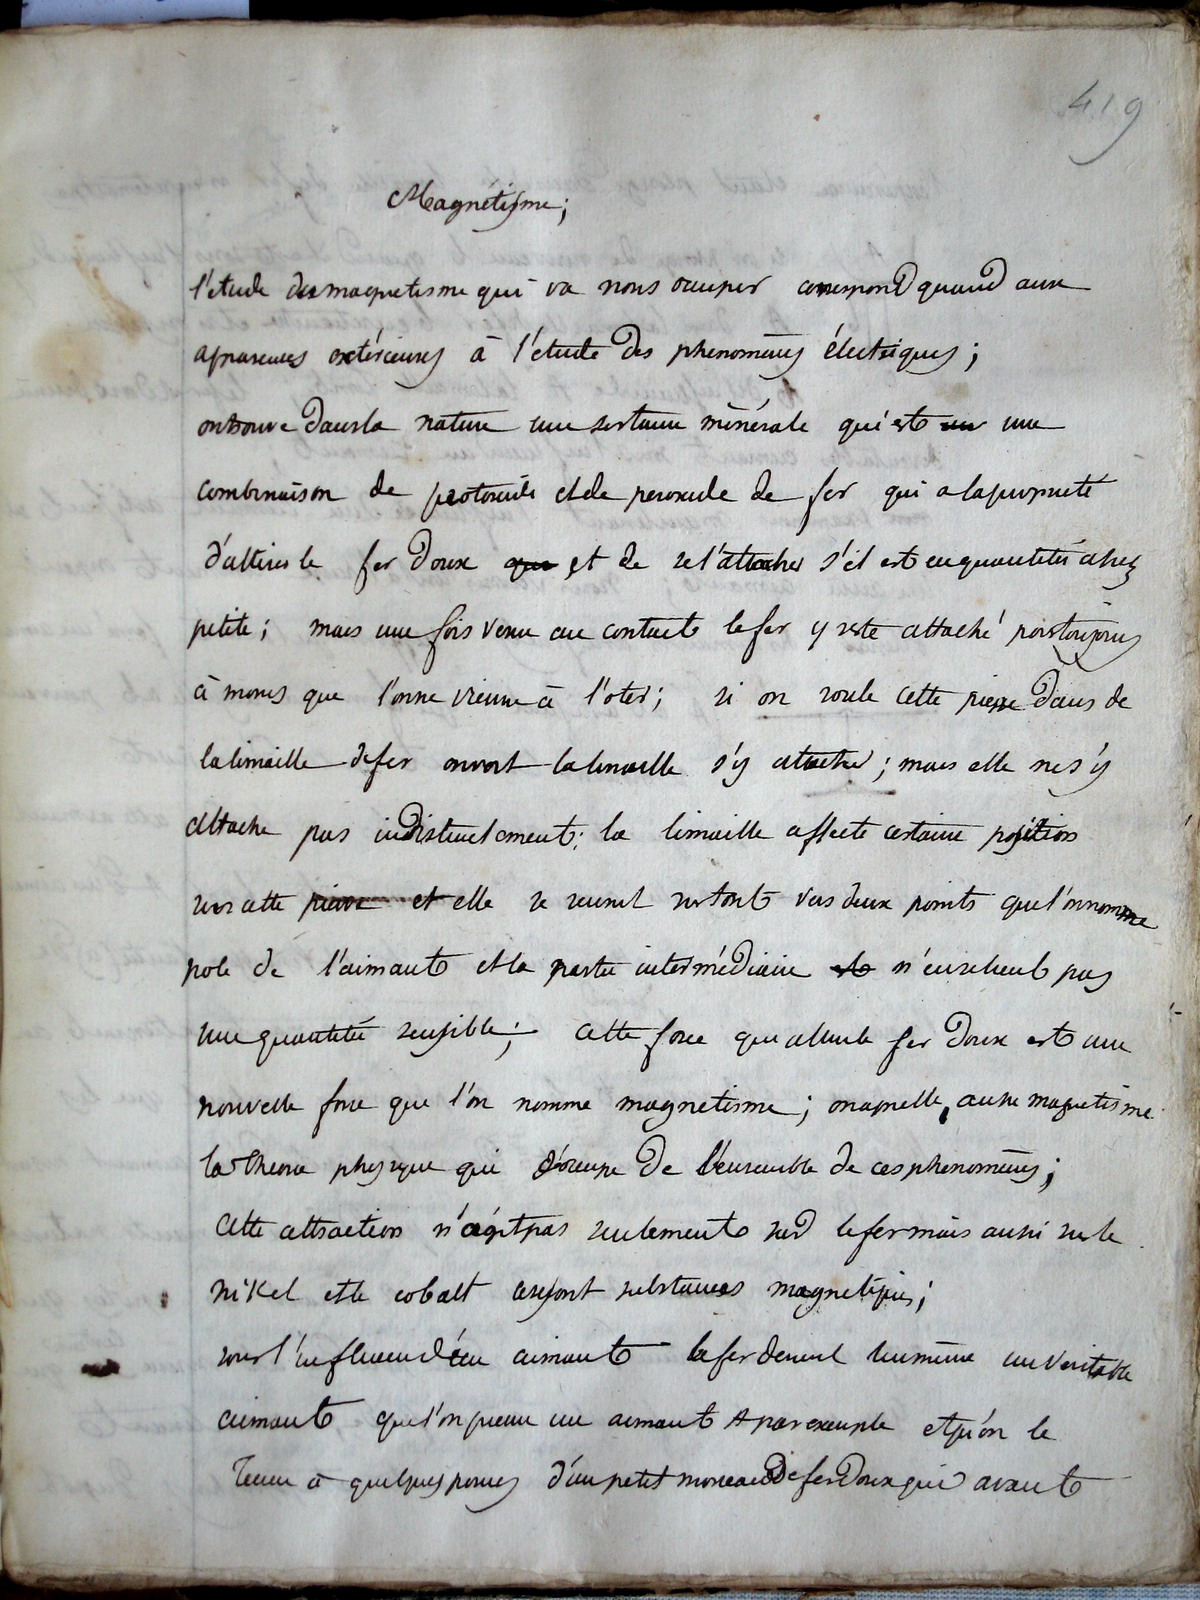 419
Magnétisme;
l'etude du magnetisme qui va nous occuper correspond quand aux
apparences extérieures à l'étude des phenomènes électriques;
on trouve dans la nature une certaine minérale qui est un une
combinaison de protoxide et de peroxide de fer qui a la propriété
d'attirer le fer doux que et de se l'attacher s'il est en quantité assez
petite; mais une fois venu au contact le fer y reste attaché pour toujours
à moins que l'on ne vienne à l'oter; si on roule cette pierre dans de
la limaille de fer on voit la limaille s'y attacher; mais elle ne s'y
attache pas indistinctement; la limaille affecte certaine position
vers cette pierre et elle se reunit surtout vers deux points que l'on nomme
pole de l'aimant et la partie intermédiaire n'en retient pas
une quantité sensible; cette force qui attire le fer doux est une
nouvelle force que l'on nomme magnetisme; on appelle aussi magnetisme
la theorie physique qui s'occupe de l'ensemble de ces phenomènes;
cette attraction n'agit pas seulement sur le fer mais aussi sur le
nikel et le cobalt ce sont substances magnetiques;
sous l'influence d'un aimant le fer devient lui même un veritable
aimant, que l'on prenne un aimant A par exemple et qu'on le
tienne à quelques pouces d'un petit morceau de fer doux qui avant